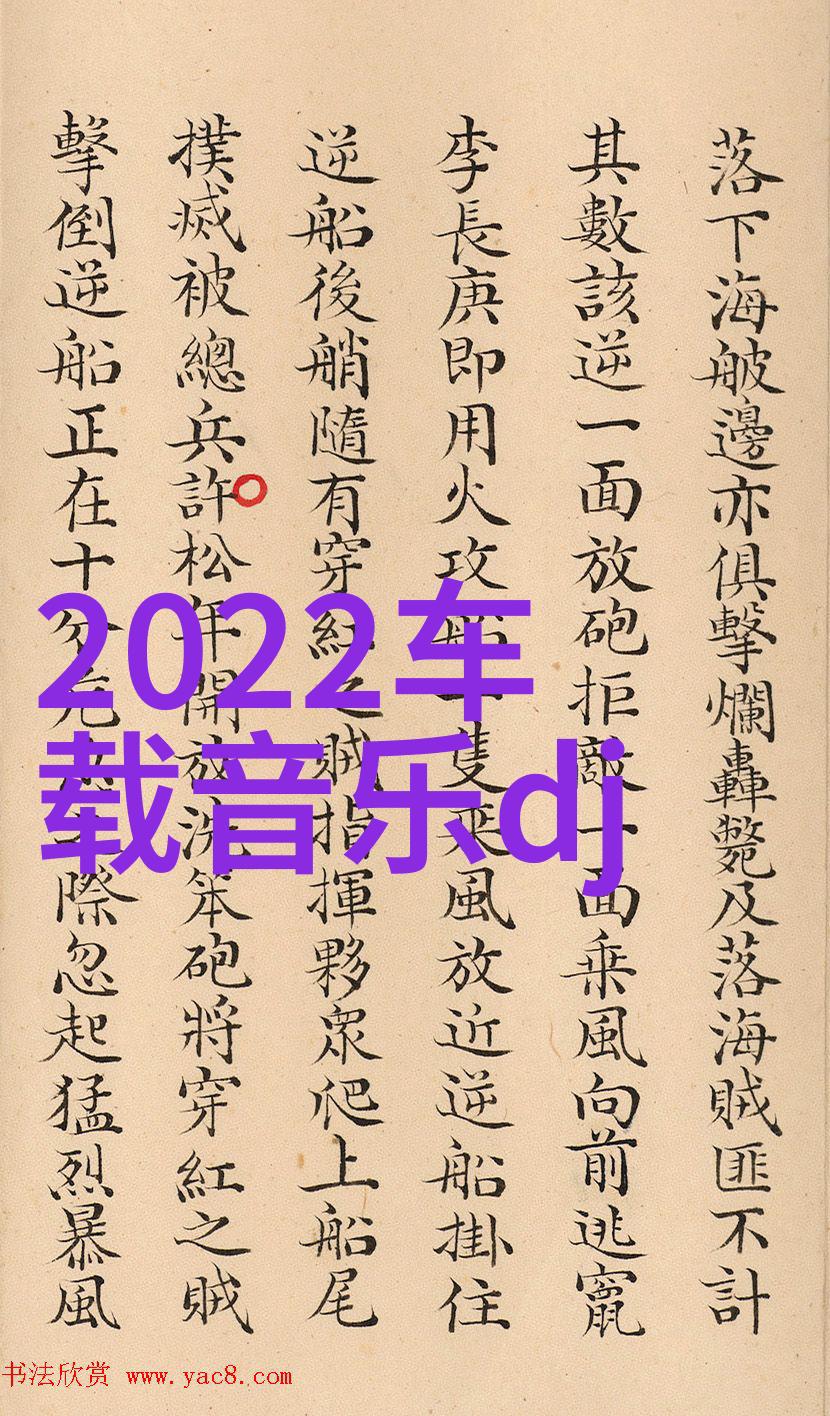 落下海舨邊亦俱擊爛轟斃及落海賊匪不計
其數該逆一面放砲拒敵一面乗風向前逃竄
李長庚即用火攻船一隻乘風放近逆船掛住
逆船後艄隨有穿紅之賊指揮夥眾爬上船尾
撲滅被總兵許松年開放洗笨砲將穿紅之賊
擊倒逆船正在十分危 際忽起猛烈暴風
2022车
载音乐dj
书法欣赏 www.yac8.com